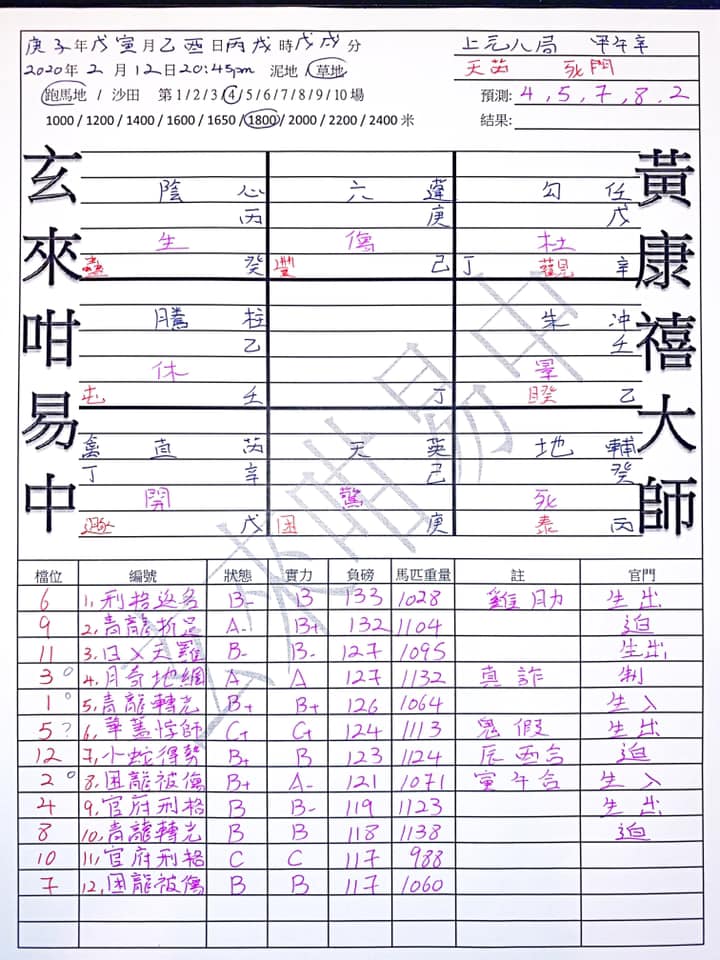 庚子年戊寅月乙酉日丙戌時戊戌分
上元八局 甲午辛
2020年2月12日20:45pm 泥地/草地
天芮 死門
跑馬地 / 沙田 第1/2/3/4/5/6/7/8/9/10場
預測: 4,5,7,8,2
1000 / 1200 / 1400 / 1600 / 1650 / 1800 / 2000 / 2200 / 2400 米
結果:
玄來咁易中
黃康禧大師
陰 心 六 蓬 勾 任
丙 庚 戊
生 傷 杜
癸 豐 己 丁 觀 辛
騰 柱 朱 冲
乙 壬
休 景
屯 壬 丁 睽 乙
禽 直 芮 天 英 地 輔
丁 辛 己 癸
開 驚 死
戊 困 庚 泰 丙
玄來咁易中
檔位 編號 狀態 實力 負磅 馬匹重量 註 官門
6 1,刑格返名 B- B 133 1028 雞助 生出
9 2,青龍折足 A- B+ 132 1104 迫
11 3,日入天羅 B- B- 127 1095 生出
3° 4,月奇地網 A A 127 1132 真詐 制
1° 5,青龍轉光 B+ B+ 126 1064 生入
5? 6,華蓋悖師 C+ C+ 124 1113 鬼假 生出
12 7,小蛇得勢 B+ B 123 1124 辰酉合 迫
2° 8,困龍被傷 B+ A- 121 1071 寅午合 生入
4 9,官府刑格 B B- 119 1123 生出
8 10,青龍轉光 B B 118 1138 迫
10 11,官府刑格 C C 117 988
7 12,困龍被傷 B B 117 1060